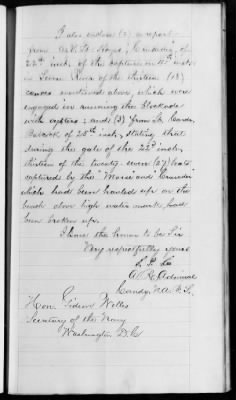 I also enclose (2) a report
from A.V. Lt. Hooker, Comdg. &c. of
22nd inst. of the capture on 11th inst.
in Severn River of the thirteen (13)
canoes mentioned above, which were
engaged in running the blockade
with oysters; and (3) from Lt. Comdr.
Babcock of 25th inst, stating that
during the gale of the 23d inst,
thirteen of the twenty-seven (27) boats
captured by the "Morse" and "Crusader"
which had been hauled up on the
beach above high water mark, had
been broken up.
I have the honor to be Sir
Very respectfully yours
S. P. Lee
A. R. Admiral
Comdg. N.A.B.S.
Hon. Gideon Welles
Secretary of the Navy
Washington D.C.